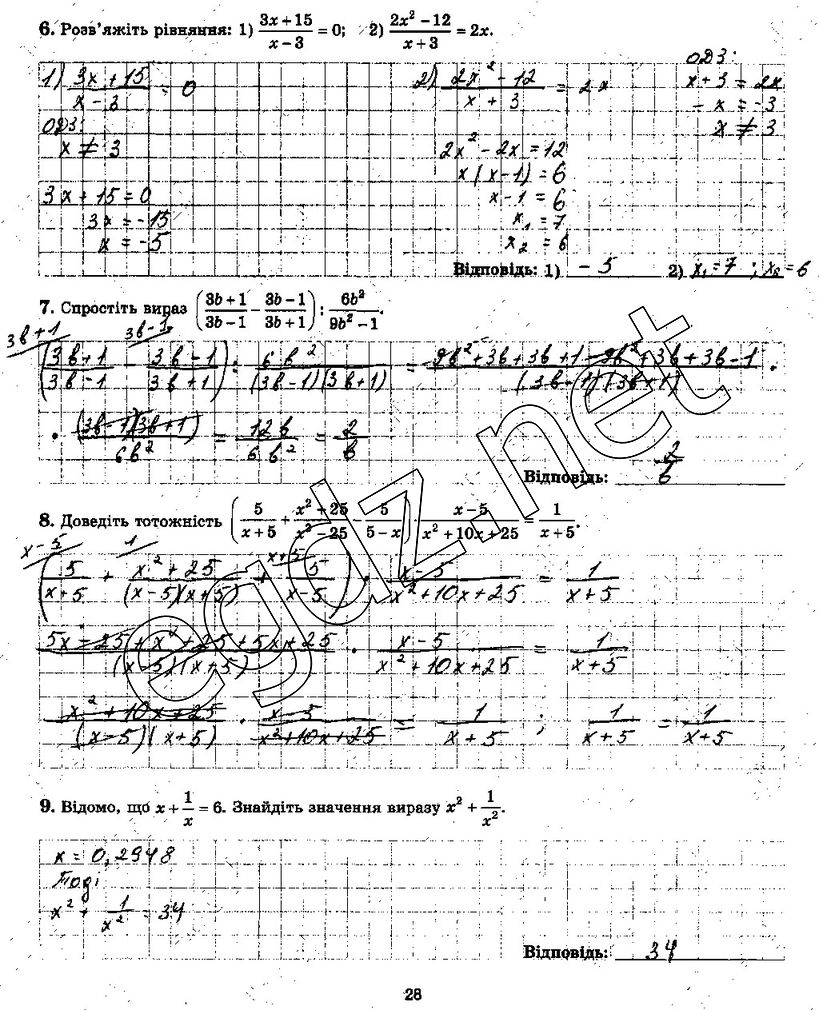 6. Розв'яжіть рівняння: 1) (3x + 15)/(x − 3) = 0; 2) (2x² − 12)/(x + 3) = 2x.
1) (3x + 15)/(x − 3) = 0
ОДЗ:
x ≠ 3
3x + 15 = 0
3x = −15
x = −5
2) (2x² − 12)/(x + 3) = 2x
2x² − 2x = 12
x(x − 1) = 6
x − 1 = 6
x₁ = 7
x₂ = 6
ОДЗ:
x + 3 = 2x
− x = −3
x ≠ 3
Відповідь: 1) − 5 2) x₁ = 7 ; x₂ = 6
7. Спростіть вираз ((3b + 1)/(3b − 1) − (3b − 1)/(3b + 1)) : 6b²/(9b² − 1).
3b + 1 3b − 1
((3b + 1)/(3b − 1) − (3b − 1)/(3b + 1)) : 6b²/((3b − 1)(3b + 1)) = (9b² + 3b + 3b + 1 − 9b² + 3b + 3b − 1)/((3b − 1)(3b + 1)) ·
· ((3b − 1)(3b + 1))/6b² = 12b/6b² = 2/b
Відповідь: 2/b
8. Доведіть тотожність (5/(x + 5) + (x² + 25)/(x² − 25) − 5/(5 − x)) · (x − 5)/(x² + 10x + 25) = 1/(x + 5).
x − 5 1 x + 5
(5/(x + 5) + (x² + 25)/((x − 5)(x + 5)) + 5/(x − 5)) · (x − 5)/(x² + 10x + 25) = 1/(x + 5)
(5x − 25 + x² + 25 + 5x + 25)/((x − 5)(x + 5)) · (x − 5)/(x² + 10x + 25) = 1/(x + 5)
(x² + 10x + 25)/((x − 5)(x + 5)) · (x − 5)/(x² + 10x + 25) = 1/(x + 5) ; 1/(x + 5) = 1/(x + 5)
9. Відомо, що x + 1/x = 6. Знайдіть значення виразу x² + 1/x².
x = 0,2948
Тоді
x² + 1/x² = 34
Відповідь: 34
28
egdz.net